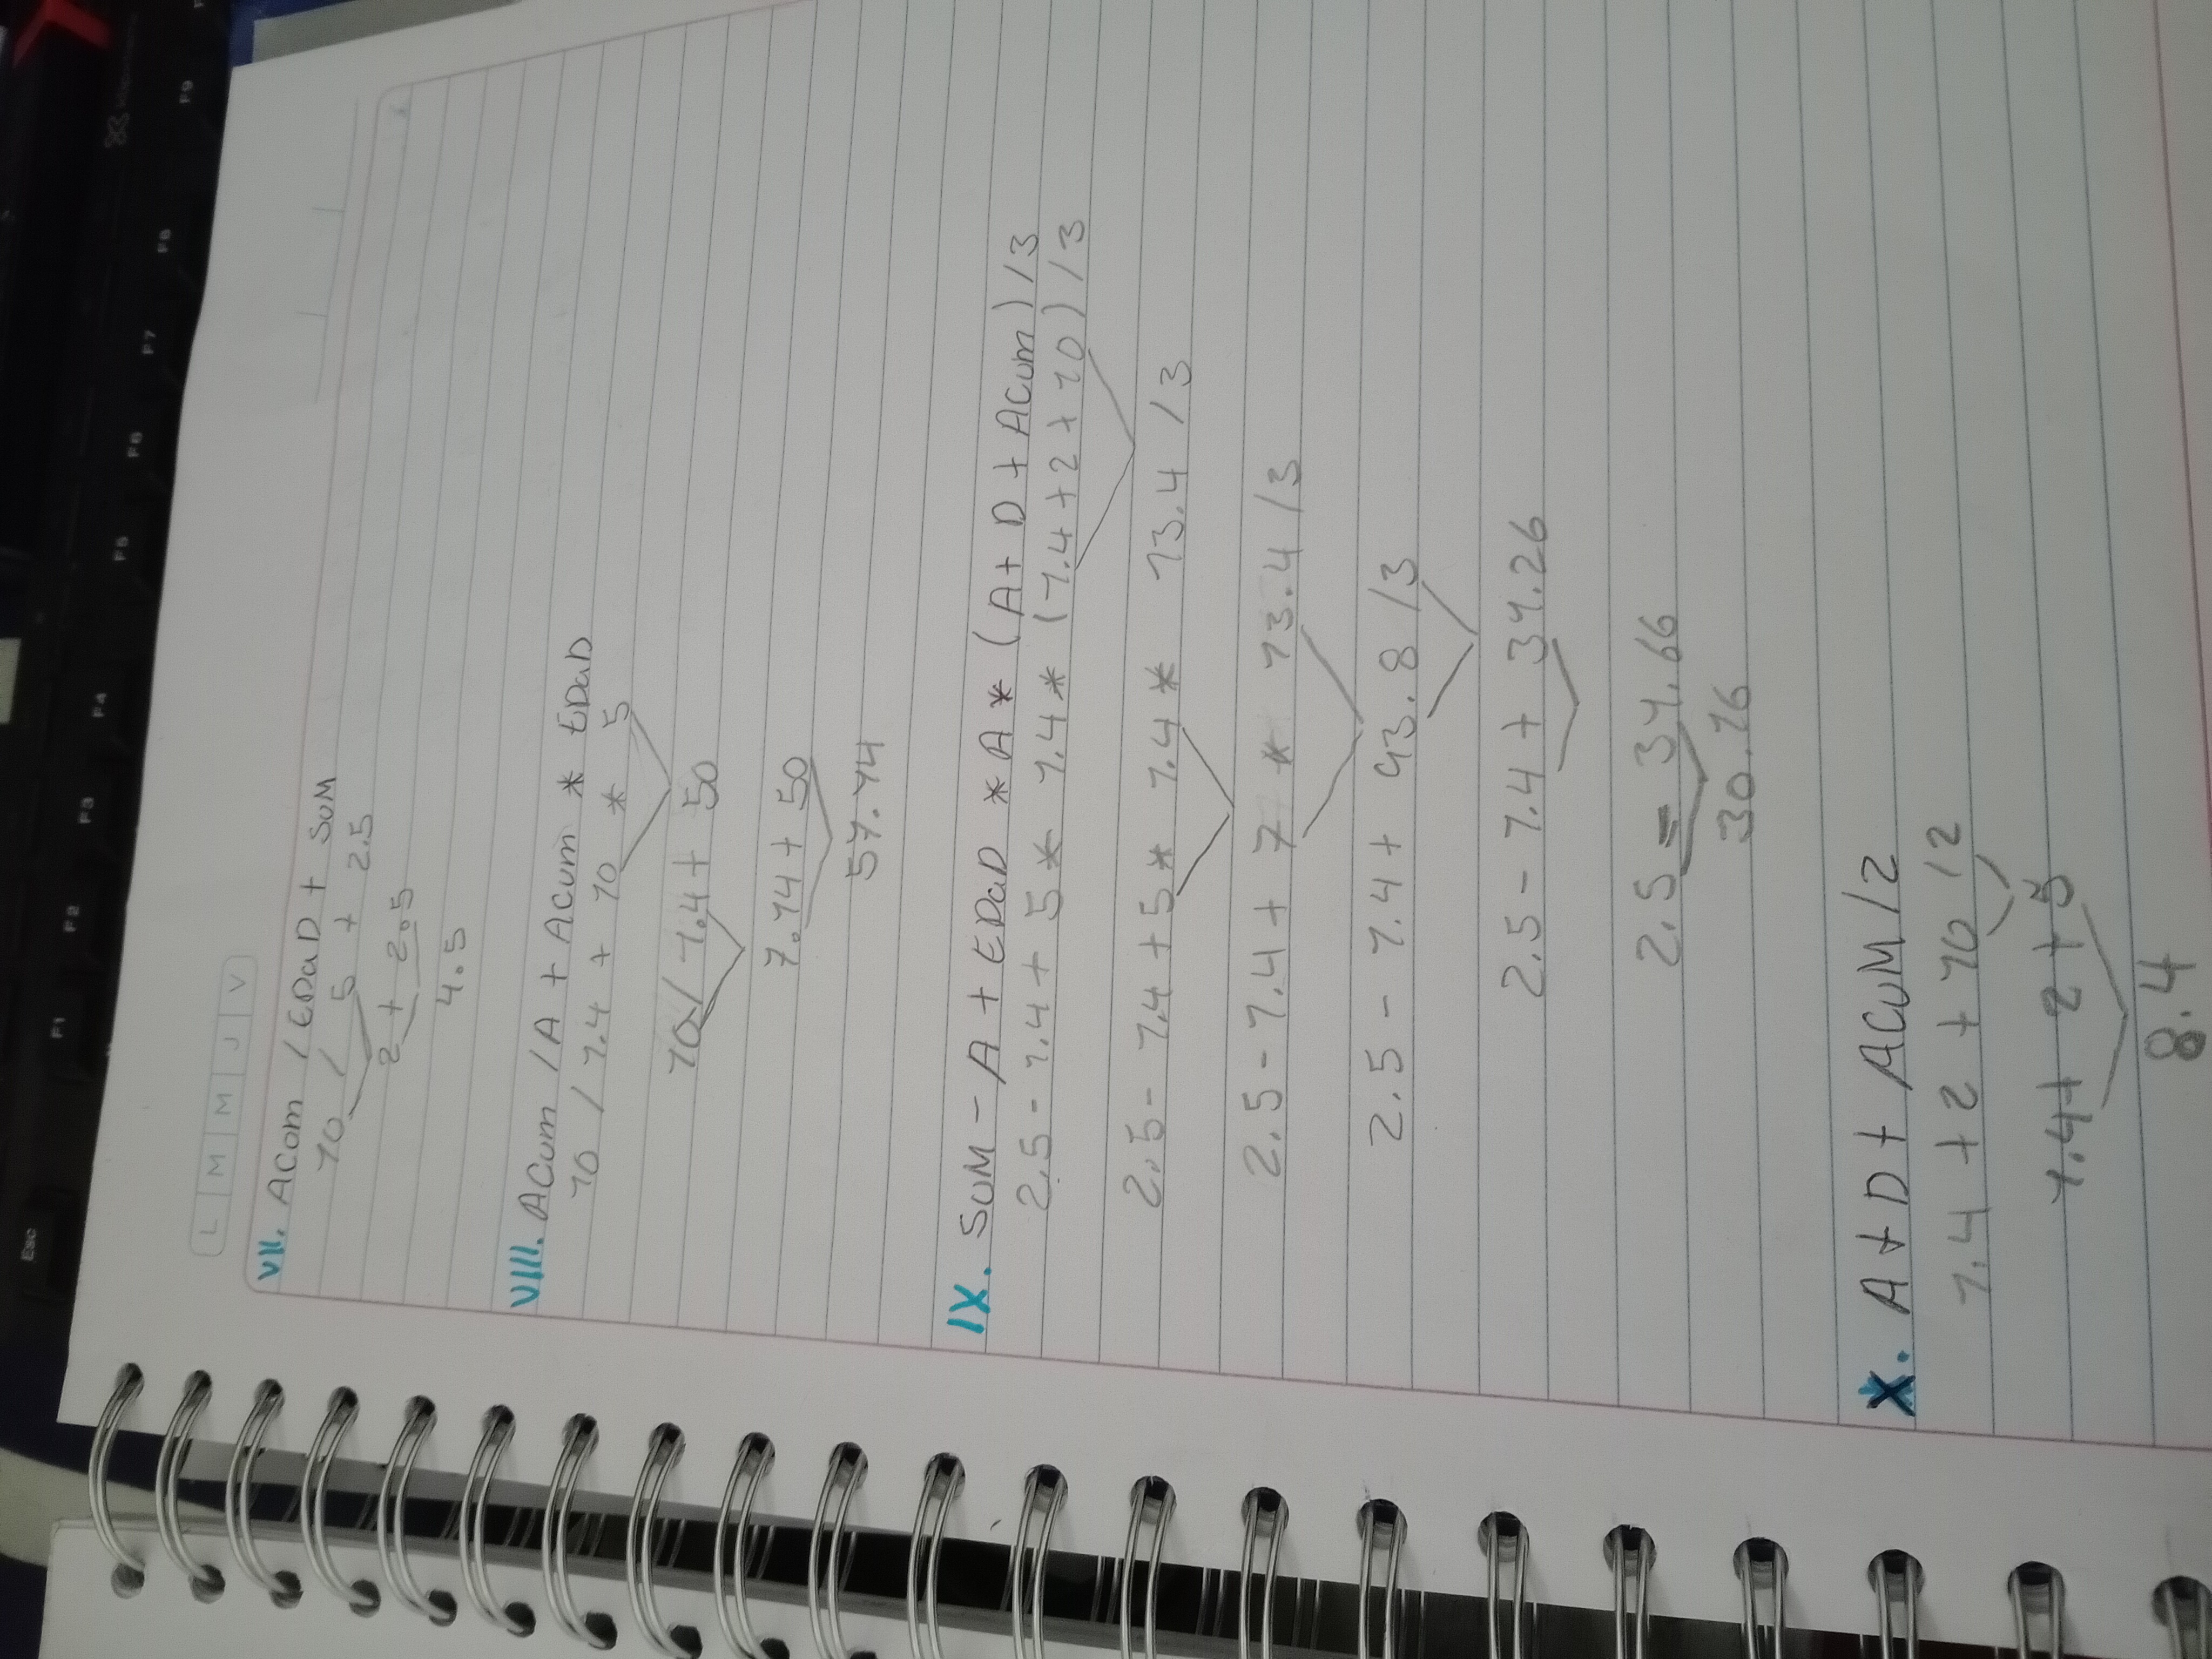 Esc F1 F2 F3 F4 F5 F6 F7 F8 F9
L M M J V
VII. ACom / EDaD + SUM
10 / 5 + 2.5
2 + 2.5
4.5
VIII. ACum / A + ACum * EDaD
10 / 1.4 + 10 * 5
10 / 1.4 + 50
7.14 + 50
57.14
IX. SUM - A + EDaD * A * (A + D + ACum) / 3
2.5 - 1.4 + 5 * 1.4 * (1.4 + 2 + 10) / 3
2.5 - 1.4 + 5 * 1.4 * 13.4 / 3
2.5 - 1.4 + 7 * 13.4 / 3
2.5 - 1.4 + 93.8 / 3
2.5 - 1.4 + 31.26
2.5 = 31.66
30.16
X. A + D + ACUM / 2
1.4 + 2 + 10 / 2
1.4 + 2 + 5
8.4